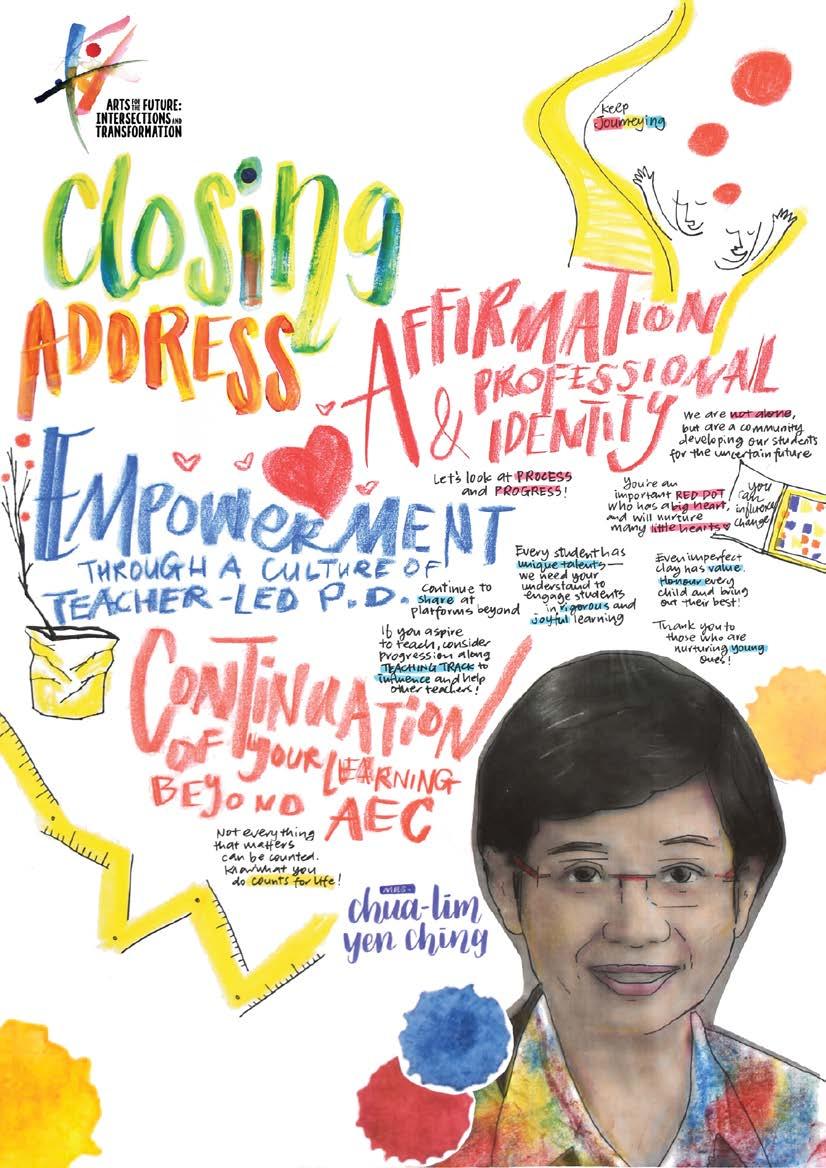 ARTS FOR THE FUTURE:
INTERSECTIONS AND
TRANSFORMATION
Keep
Journeying
Closing
ADDRESS
AFFIRMATION
& PROFESSIONAL
IDENTITY
We are not alone,
but are a community
developing our students
for the uncertain future
Let's look at PROCESS
and PROGRESS!
You're an
important RED DOT
who has a big heart,
and will nurture
many little hearts
you
can
influence
change
EMPOWERMENT
THROUGH A CULTURE OF
TEACHER-LED P.D.
continue to
share at
platforms beyond
Every student has
unique talents—
we need your
understand to
engage students
in rigorous and
joyful learning
Even imperfect
clay has value.
Honour every
child and bring
out their best!
Thank you to
those who are
nurturing young
ones!
If you aspire
to teach, consider
progression along
TEACHING TRACK to
influence and help
other teachers!
CONTINUATION
OF YOUR LEARNING
BEYOND AEC
Not everything
that matters
can be counted.
Know what you
do counts for life!
MRS.
chua-lim
yen ching